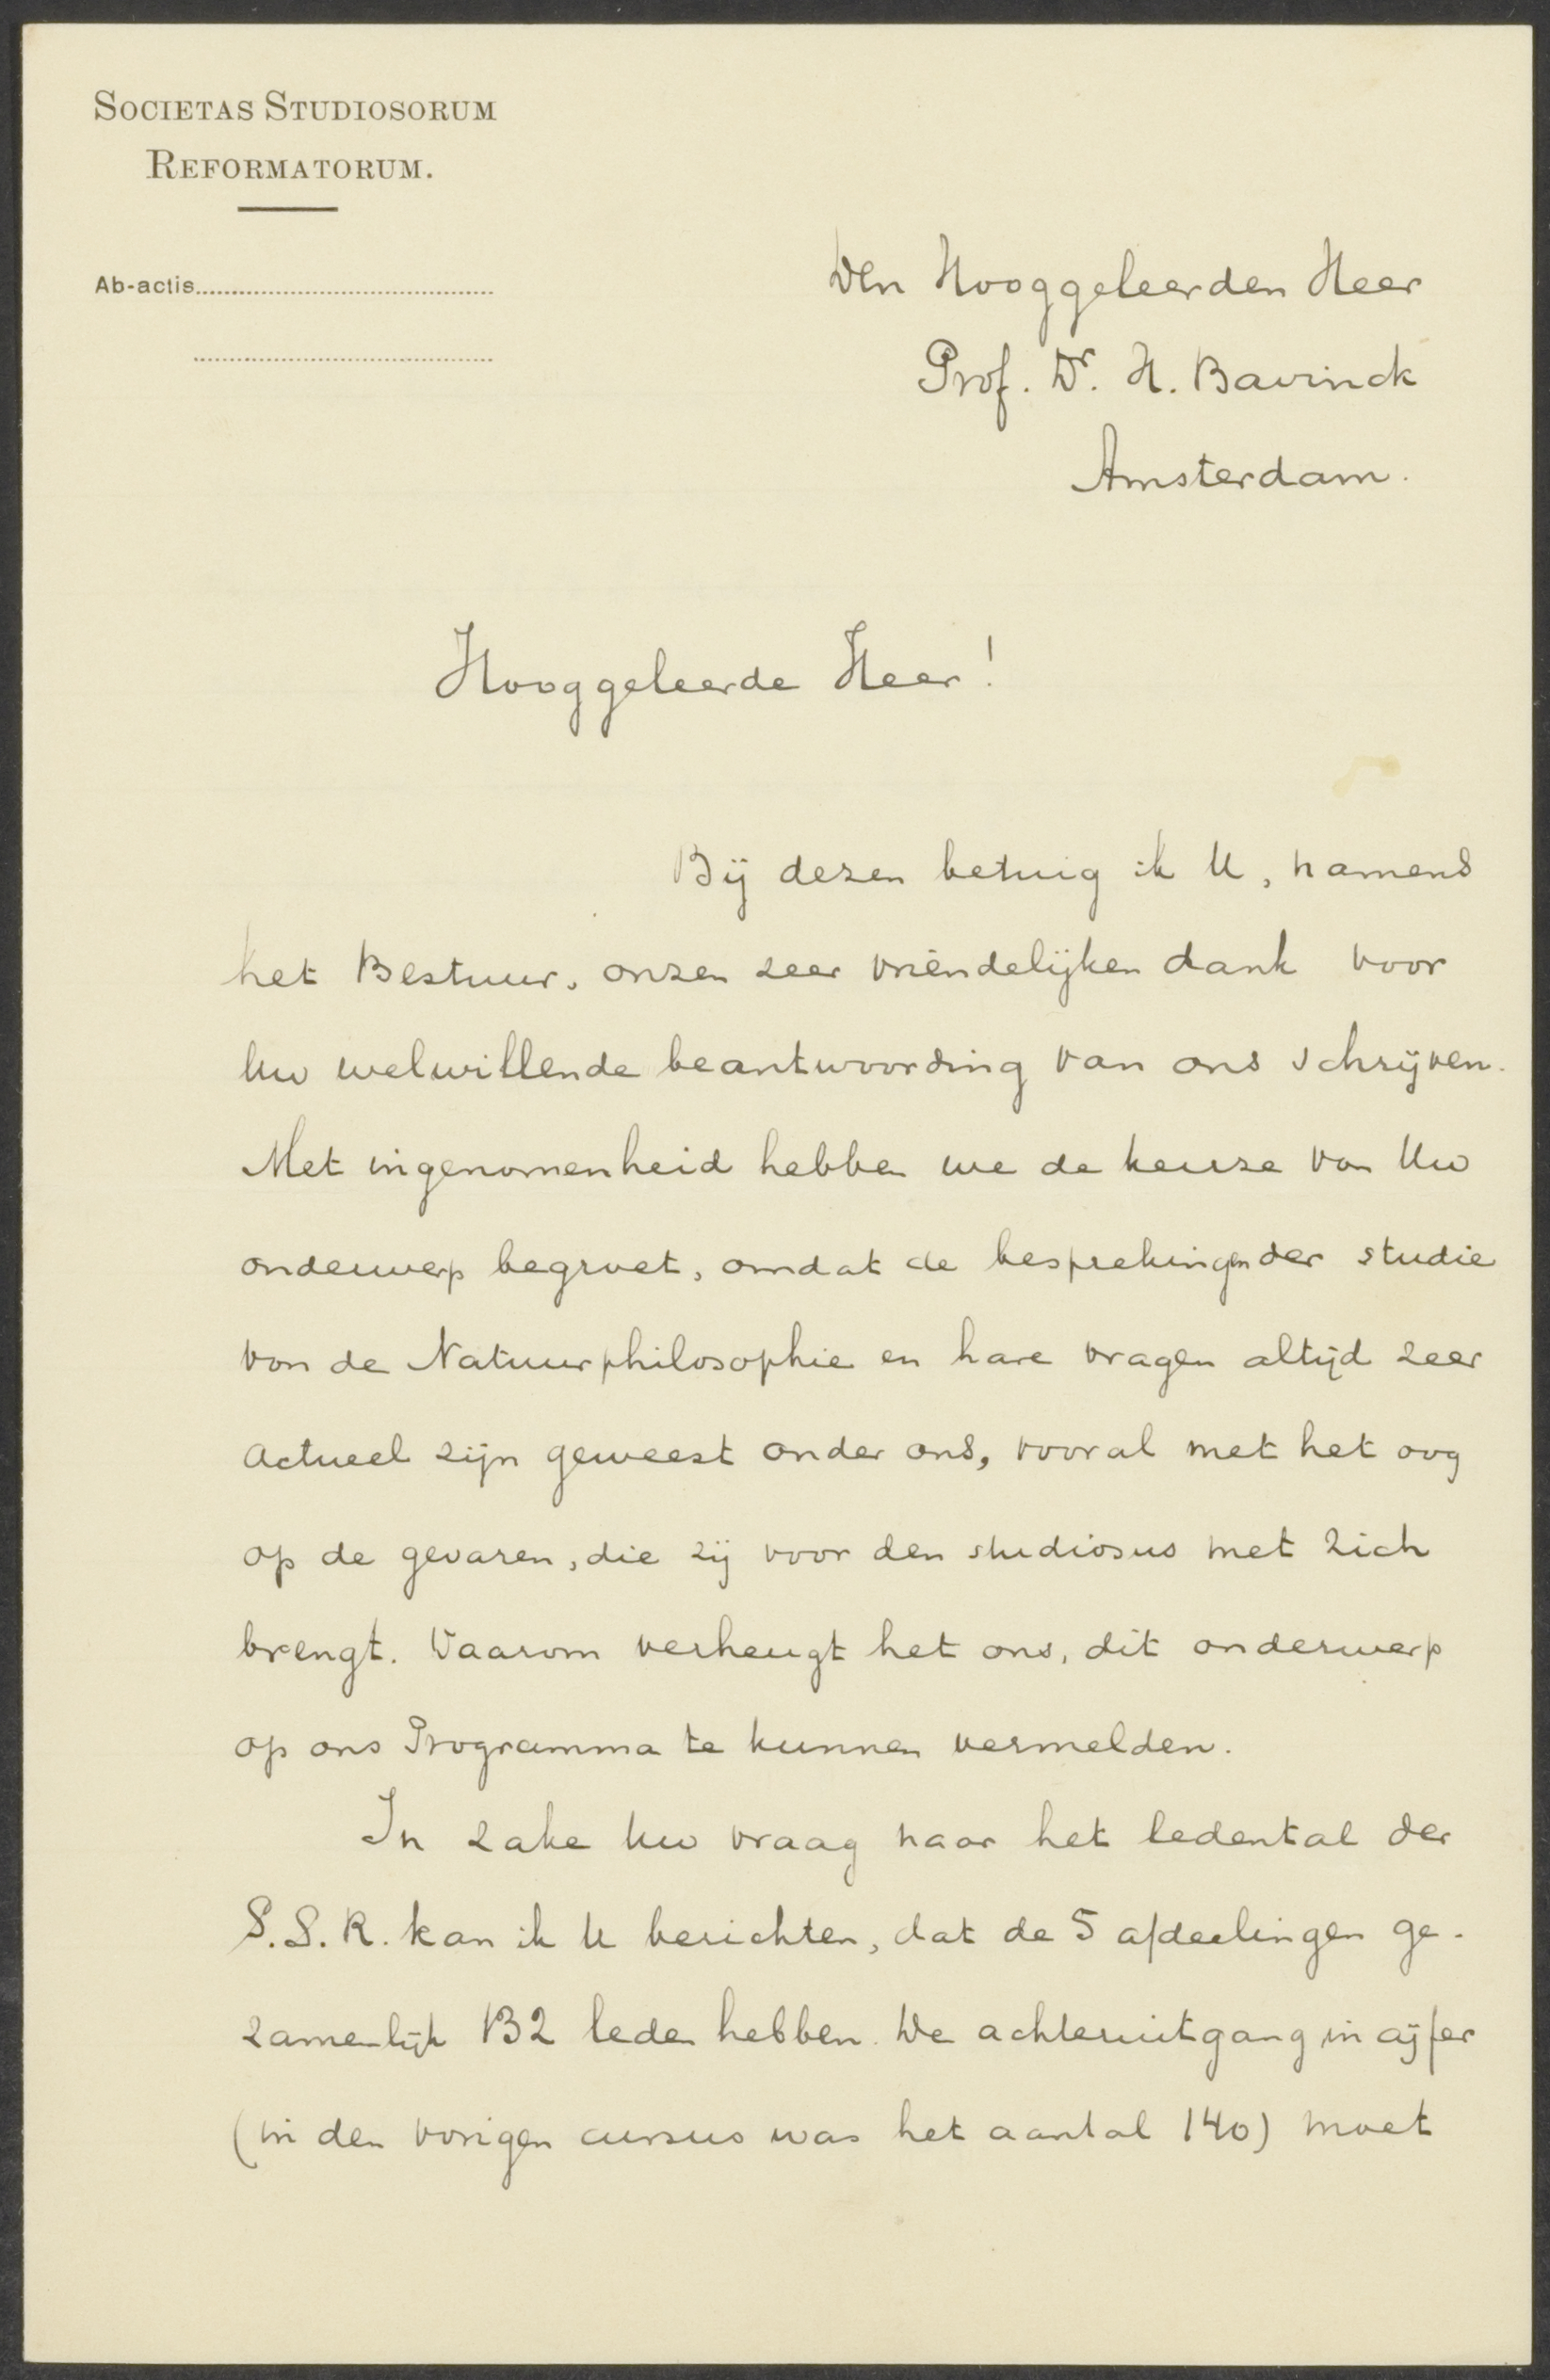 SOCIETAS STUDIOSORUM
REFORMATORUM.
Ab-actis
Den Hooggeleerden Heer
Prof. Dr. H. Bavinck
Amsterdam.
Hooggeleerde Heer!
Bij dezen betuig ik U, namens
het Bestuur, onzen zeer vriendelijken dank voor
Uw welwillende beantwoording van ons schrijven.
Met ingenomenheid hebben we de keuze van Uw
onderwerp begroet, omdat de besprekingen der studie
van de Natuurphilosophie en hare vragen altijd zeer
actueel zijn geweest onder ons, vooral met het oog
op de gevaren, die zij voor den studiosus met zich
brengt. Daarom verheugt het ons, dit onderwerp
op ons Programma te kunnen vermelden.
In zake Uw vraag naar het ledental der
S.S.R. kan ik U berichten, dat de 5 afdeelingen ge-
zamenlijk 132 leden hebben. De achteruitgang in cijfer
(in den vorigen cursus was het aantal 140) moet